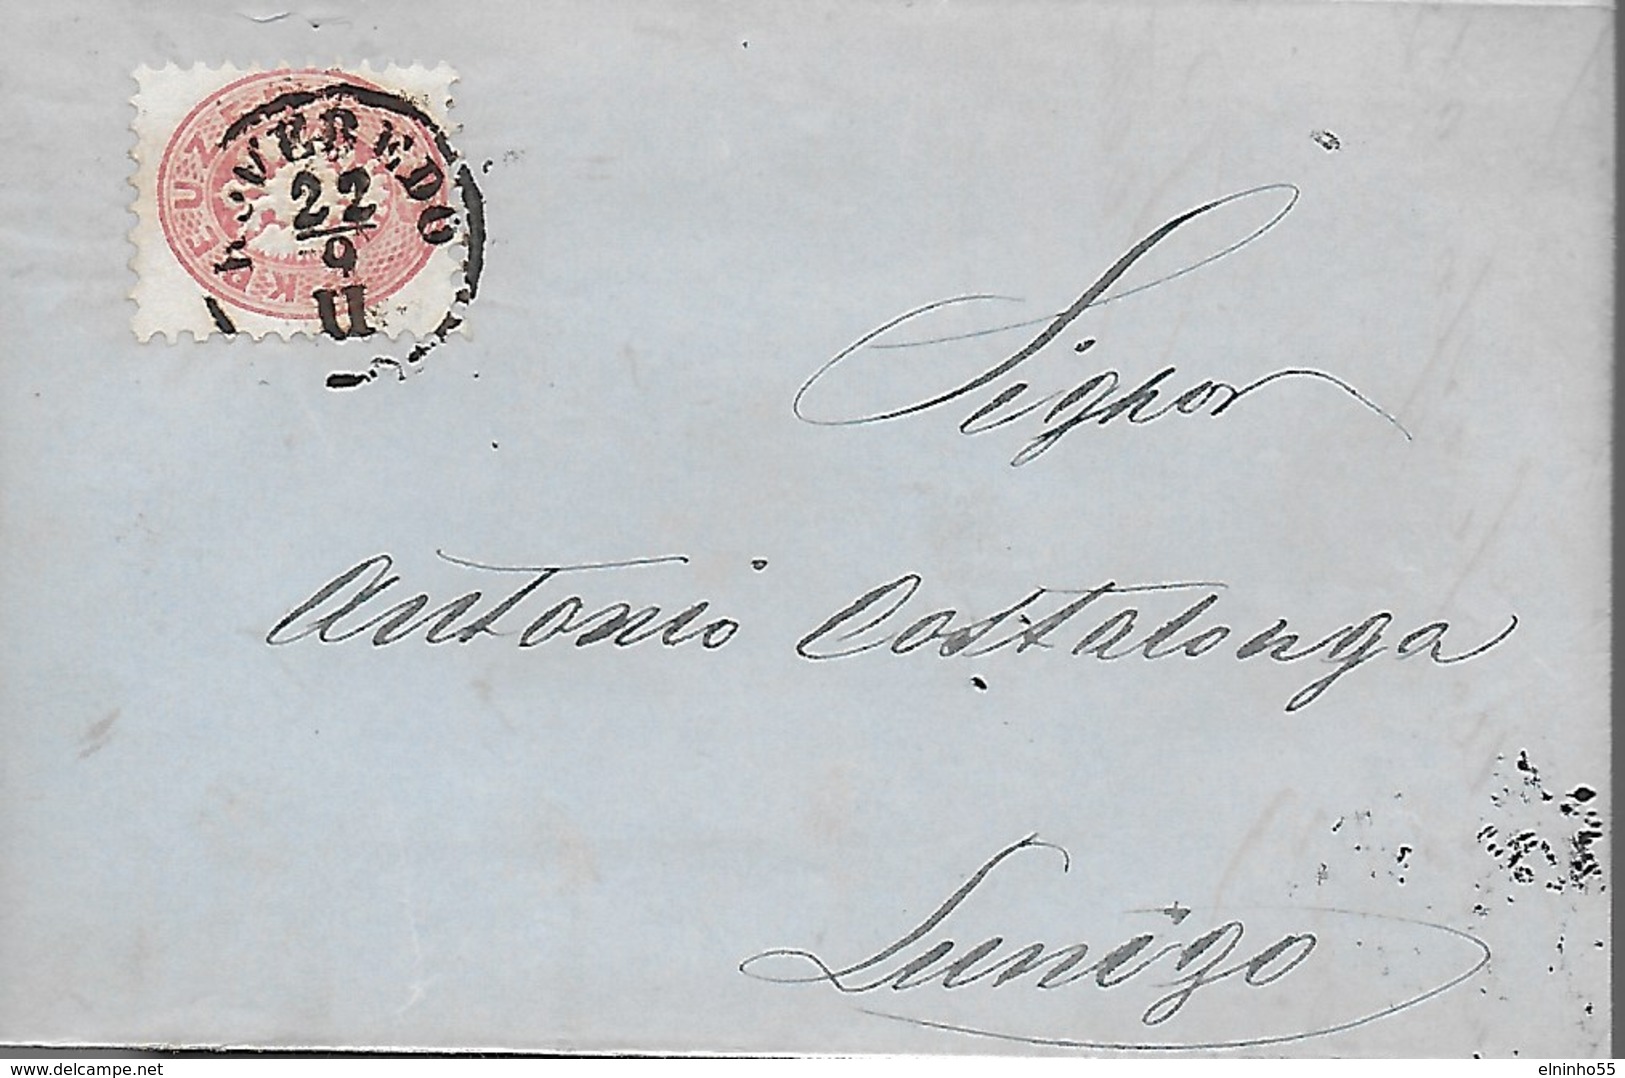 KREUZER
ROVEREDO
22
9
II
Signor
Antonio Costalonga
Lunigo
© delcampe.net
elninho55